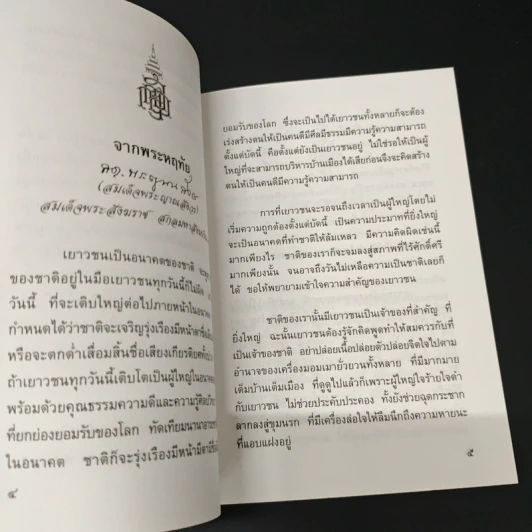 จากพระหฤทัย
(สมเด็จพระญาณสังวร)
สมเด็จพระสังฆราช สกลมหาสังฆ
เยาวชนเป็นอนาคตของชาติ
ของชาติอยู่ในมือเยาวชนทุกวันนี้ก็ไม่ผิด
วันนี้ ที่จะเติบใหญ่ต่อไปภายหน้าในอนาคต
กำหนดได้ว่าชาติจะเจริญรุ่งเรืองมีหน้า
หรือจะตกต่ำเสื่อมสิ้นชื่อเสียงเกียรติยศ
ถ้าเยาวชนทุกวันนี้เติบโตเป็นผู้ใหญ่ในอนาคต
พร้อมด้วยคุณธรรมความดีและความรู้
ที่ยกย่องยอมรับของโลก ทัดเทียมนานา
ในอนาคต ชาติก็จะรุ่งเรืองมีหน้ามี
๔
ยอมรับของโลก ซึ่งจะเป็นไปได้เยาวชนทั้งหลายก็จะต้อง
เร่งสร้างตนให้เป็นคนดีมีศีลมีธรรมมีความรู้ความสามารถ
ตั้งแต่บัดนี้ คือตั้งแต่ยังเป็นเยาวชนอยู่ ไม่ใช่รอให้เป็นผู้
ใหญ่ที่จะสามารถบริหารบ้านเมืองได้เสียก่อนจึงจะคิดสร้าง
ตนให้เป็นคนดีมีความรู้ความสามารถ
การที่เยาวชนจะรอจนถึงเวลาเป็นผู้ใหญ่โดยไม่
เริ่มความถูกต้องตั้งแต่บัดนี้ เป็นความประมาทที่ยิ่งใหญ่
จะเป็นอนาคตที่ทำชาติให้ล้มเหลว มีความคิดผิดเช่นนี้
มากเพียงไร ชาติของเราก็จะจมลงสู่สภาพที่ไร้ศักดิ์ศรี
มากเพียงนั้น จนอาจถึงวันไม่เหลือความเป็นชาติเลยก็
ได้ ขอให้พยายามเข้าใจความสำคัญของเยาวชน
ชาติของเรานั้นมีเยาวชนเป็นเจ้าของที่สำคัญ ที่
ยิ่งใหญ่ ฉะนั้นเยาวชนต้องรู้จักคิดพูดทำให้สมควรกับที่
เป็นเจ้าของชาติ อย่าปล่อยเนื้อปล่อยตัวปล่อยจิตใจไปตาม
อำนาจของเครื่องมอมเมายั่วยวนทั้งหลาย ที่มีมากมาย
เต็มบ้านเต็มเมือง ที่ดูดูไปแล้วก็เพราะผู้ใหญ่ใจร้ายใจดำ
กับเยาวชน ไม่ช่วยประคับประคอง ทั้งยังช่วยฉุดกระชาก
ลากลงสู่ขุมนรก ที่มีเครื่องล่อใจให้ลืมนึกถึงความหายนะ
ที่แอบแฝงอยู่
๕